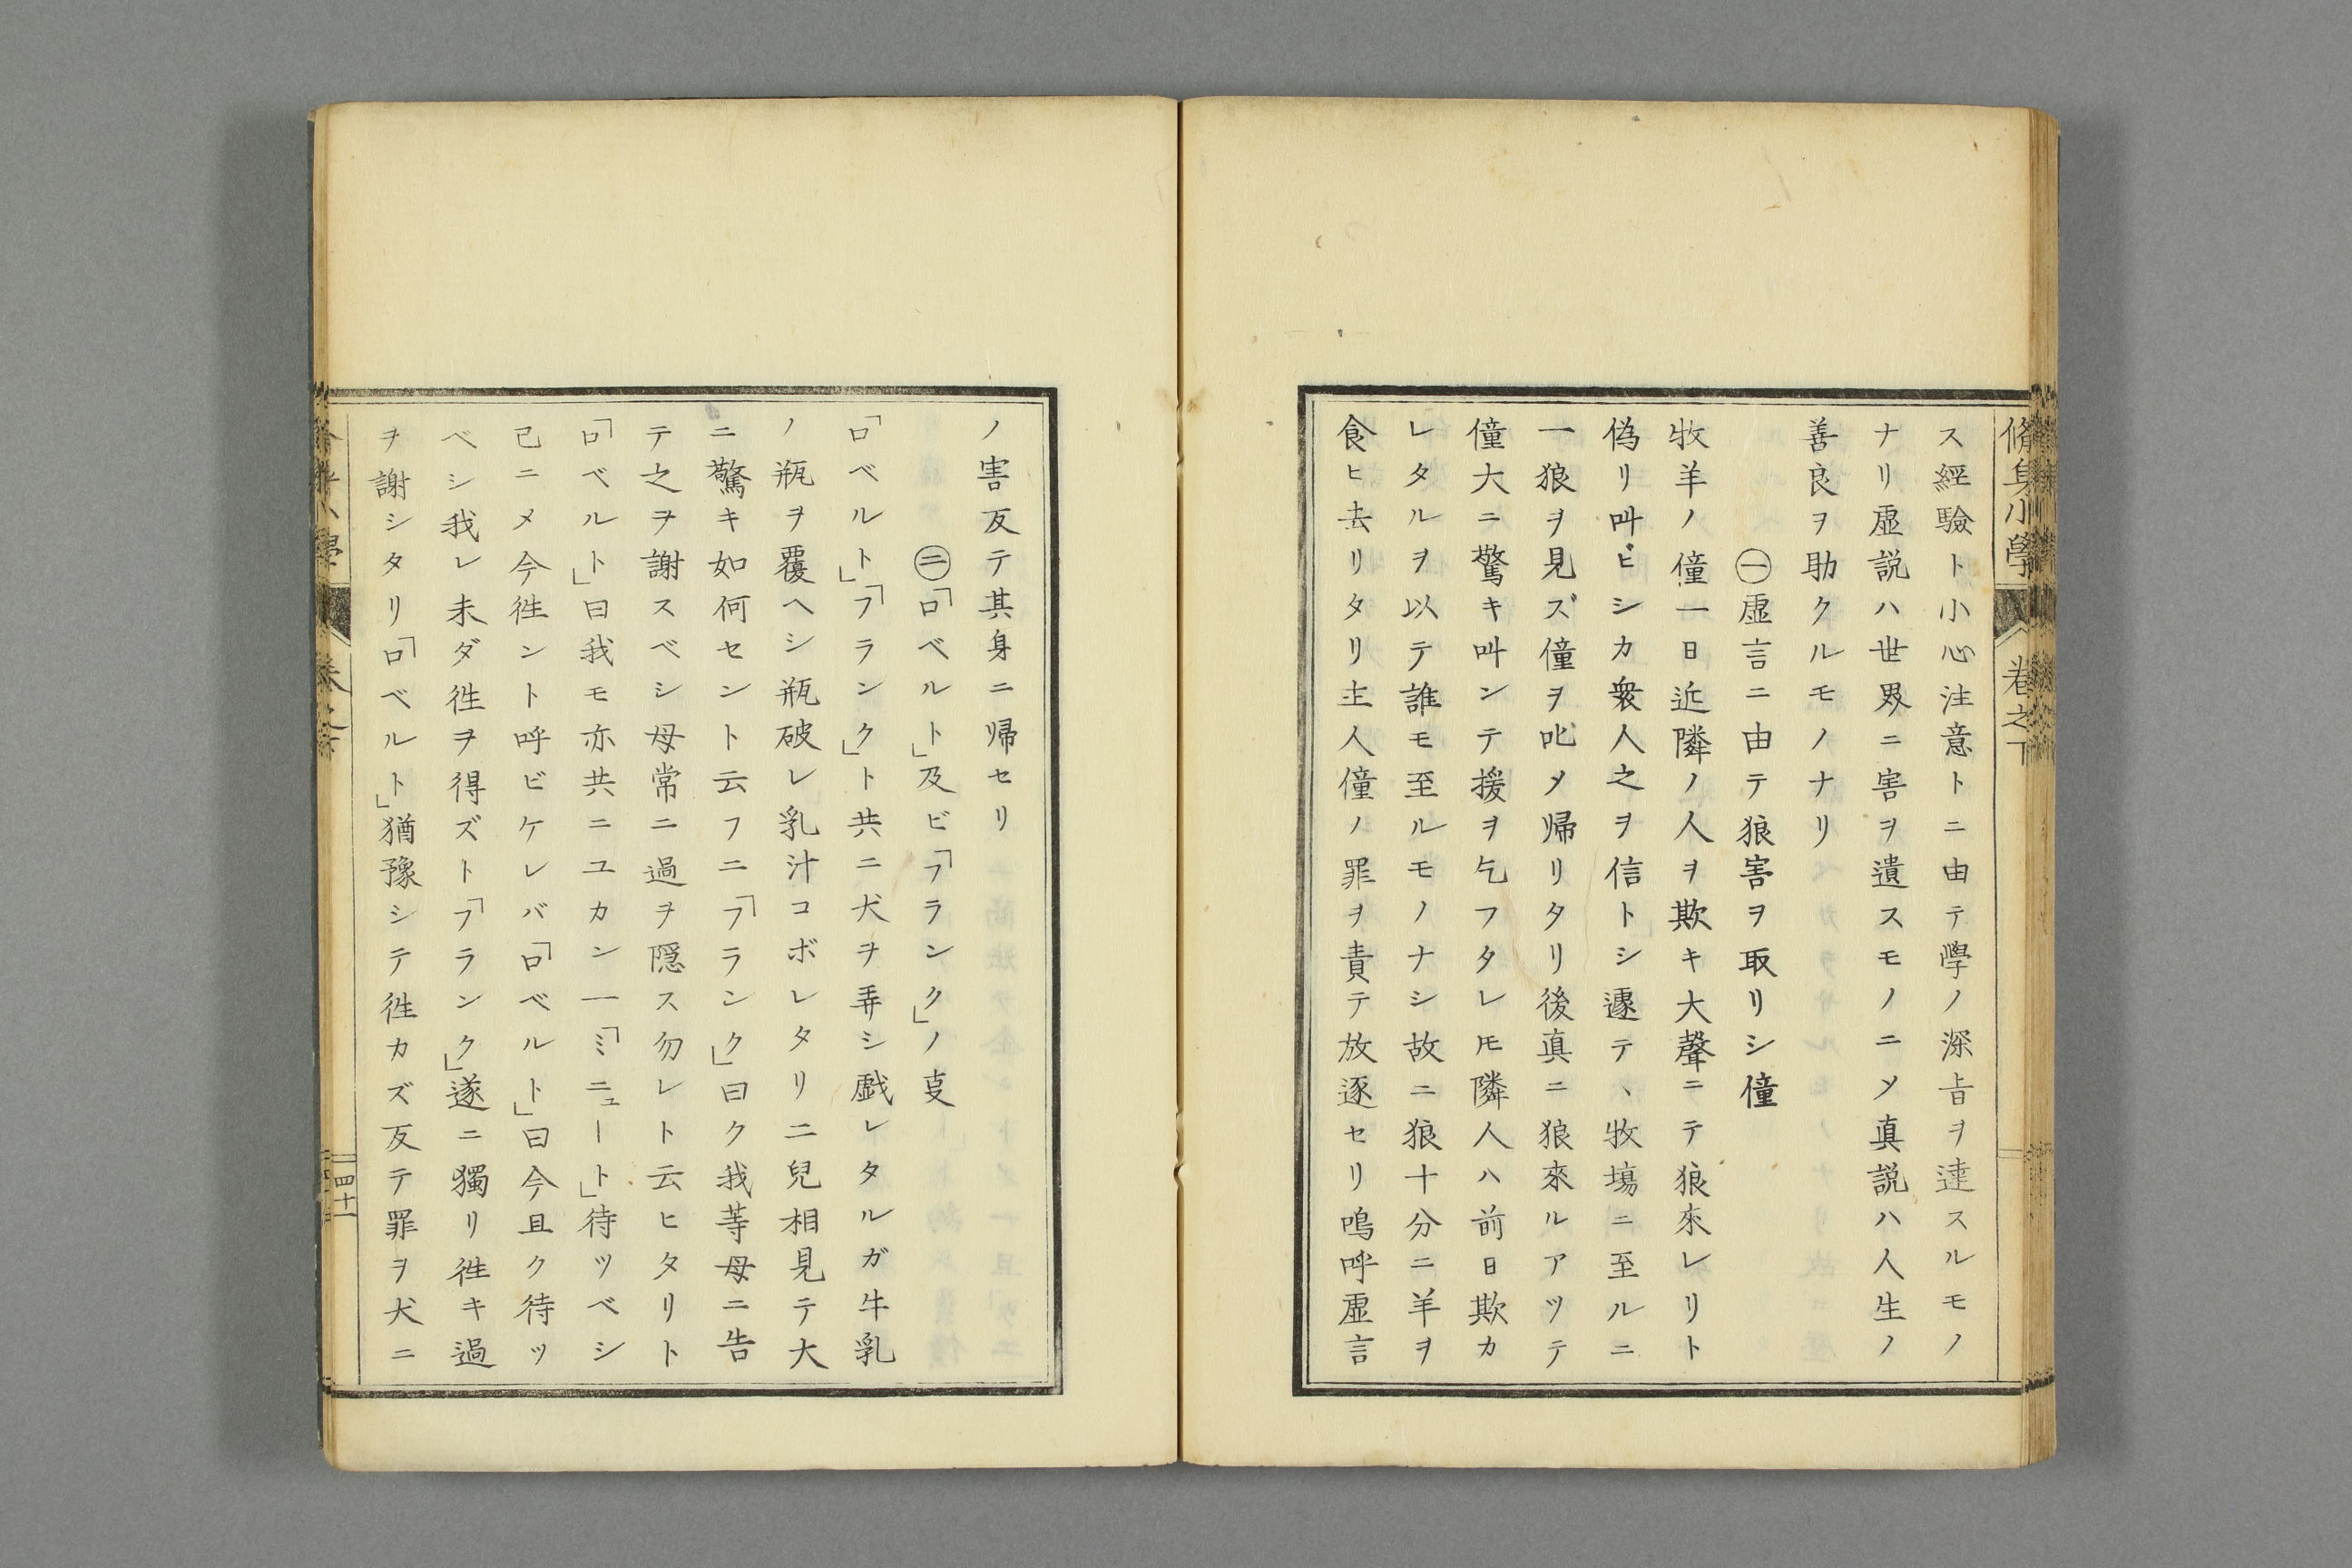 脩身小學 卷之下
ス經驗ト小心注意トニ由テ學ノ深旨ヲ達スルモノ
ナリ虚説ハ世界ニ害ヲ遺スモノニメ真説ハ人生ノ
善良ヲ助クルモノナリ
㊀虚言ニ由テ狼害ヲ取リシ僮
牧羊ノ僮一日近隣ノ人ヲ欺キ大聲ニテ狼來レリト
偽リ叫ビシカ衆人之ヲ信トシ遽テヽ牧塲ニ至ルニ
一狼ヲ見ズ僮ヲ叱メ帰リタリ後真ニ狼來ルアツテ
僮大ニ驚キ叫ンテ援ヲ乞フタレ𪜈隣人ハ前日欺カ
レタルヲ以テ誰モ至ルモノナシ故ニ狼十分ニ羊ヲ
食ヒ去リタリ主人僮ノ罪ヲ責テ放逐セリ嗚呼虚言
ノ害反テ其身ニ帰セリ
㊁「ロベルト」及ビ「フランク」ノ叓
「ロベルト」「フランク」ト共ニ犬ヲ弄シ戯レタルガ牛乳
ノ瓶ヲ覆ヘシ瓶破レ乳汁コボレタリ二兒相見テ大
ニ驚キ如何セント云フニ「フランク」曰ク我等母ニ告
テ之ヲ謝スベシ母常ニ過ヲ隠ス勿レト云ヒタリト
「ロベルト」曰我モ亦共ニユカン一「ミニュート」待ツベシ
已ニメ今徃ント呼ビケレバ「ロベルト」曰今且ク待ツ
ベシ我レ未ダ徃ヲ得ズト「フランク」遂ニ獨リ徃キ過
ヲ謝シタリ「ロベルト」猶豫シテ徃カズ反テ罪ヲ犬ニ
四十一